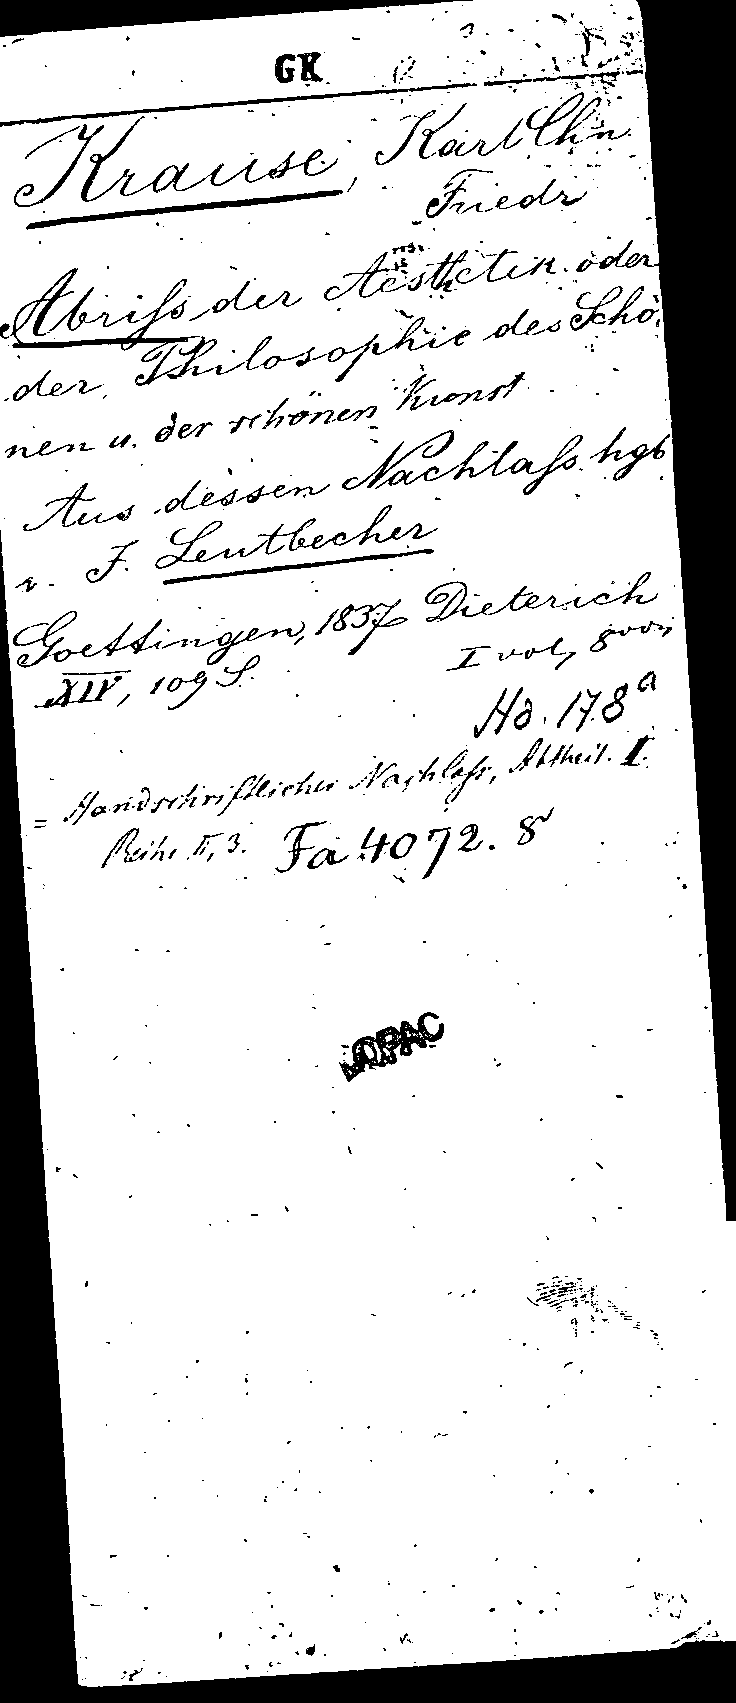 GK
Krause, Karl Chn
Friedr
Abriſs der Aesthetik oder
der Philosophie des Schö-
nen u. der schönen Kunst
Aus dessen Nachlaſs hgb
v. J. Leutbecher
Goettingen, 1837 Dieterich
XIV, 109 S. I vol, 8vo
Hd. 178a
= Handschriftlicher Nachlaſs, Abtheil. I.
Reihe II, 3. Fa 4072. 8°
OPAC